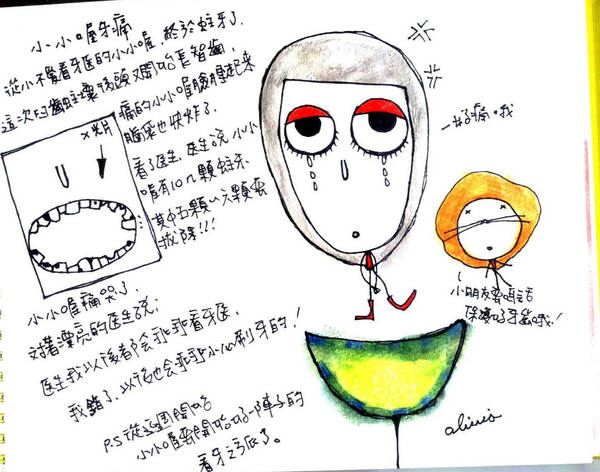 小小喔牙痛
從小不愛看牙醫的小小喔,終於蛀牙了.
這次因為蛀壞的頭又開始長智齒,
痛的小小喔臉腫起來
腦袋也快炸了.
看了醫生,醫生說小小
喔有10几顆蛀牙
其中五顆~六顆需
拔除!!!
X光片
小小喔痛哭了.
對著漂亮的醫生說:
醫生我以後都會乖乖看牙醫,
我錯了,以後也會乖乖小心刷牙的!
P.S從這週開始
小小喔要開始好一陣子的
看牙之旅了.
好痛。哦
小朋友要記得
保護好牙齒哦!
alinia